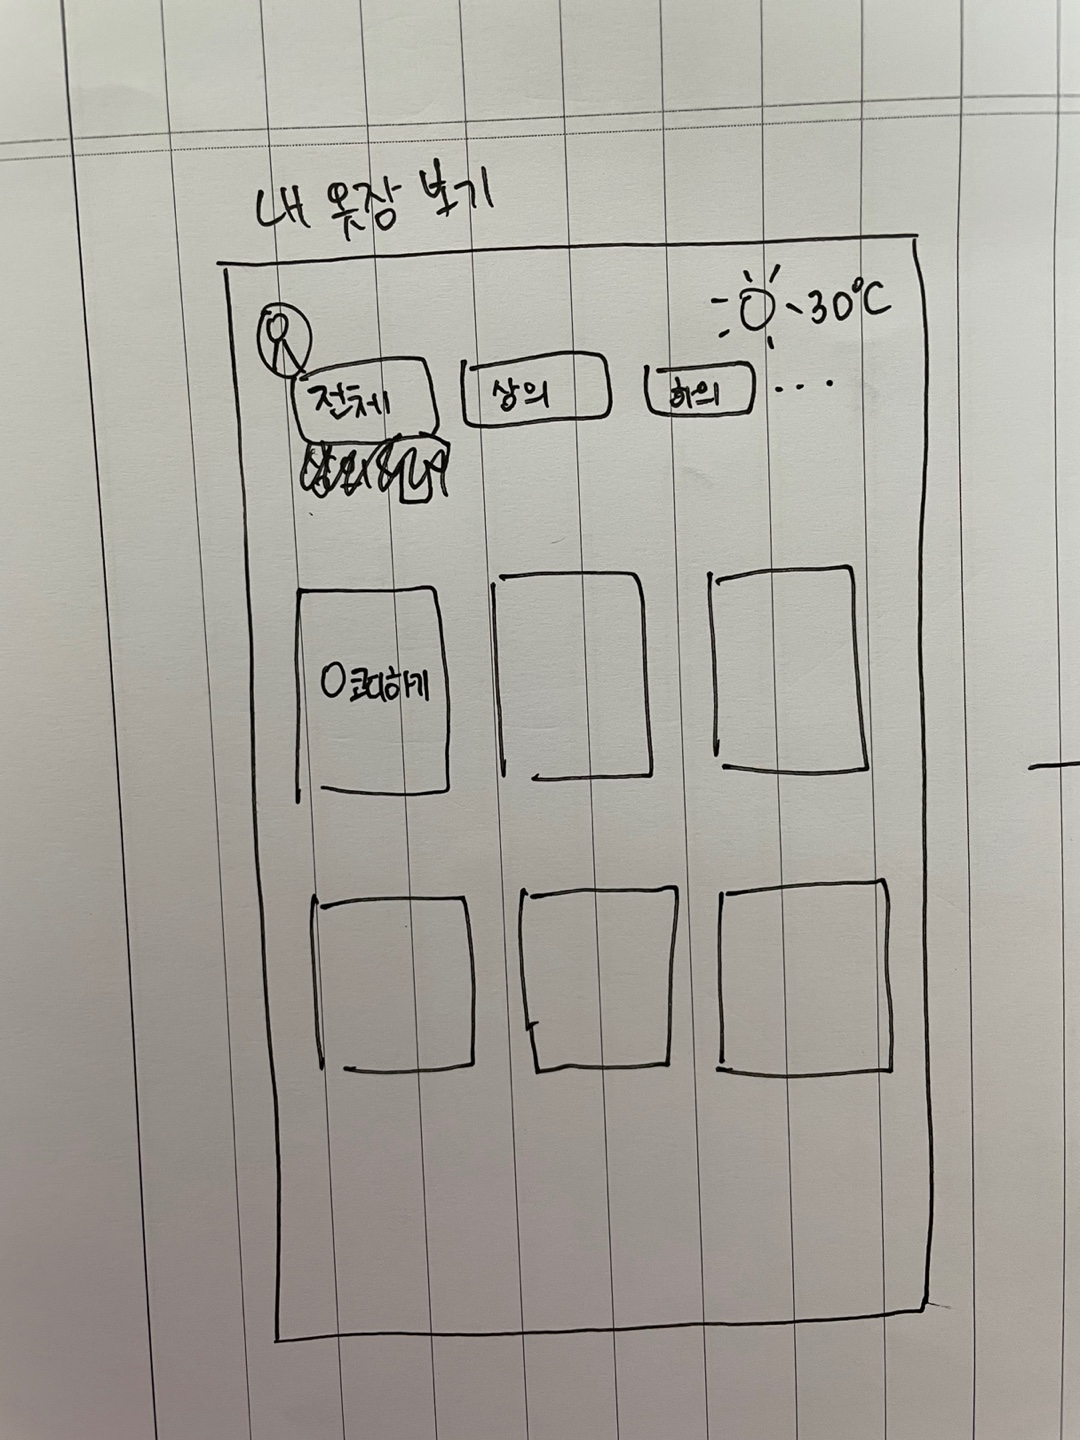 내 옷장 보기
30°C
전체 상의 하의 ...
코디하기